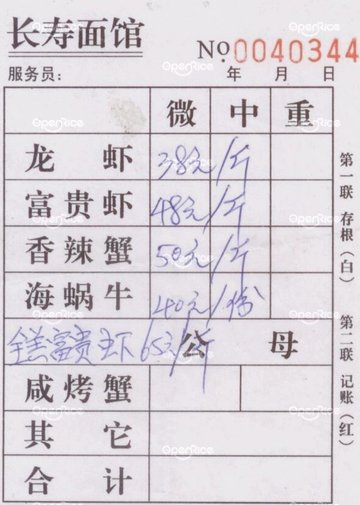 长寿面馆
No.0040344
服务员: 年 月 日
微 中 重
龙虾 38元/斤
富贵虾 48元/斤
香辣蟹 50元/斤
海蜗牛 40元/份
富贵虾 65元/斤
公 母
咸烤蟹
其它
合计
第一联 存根(白)
第二联 记账(红)
OpenRice